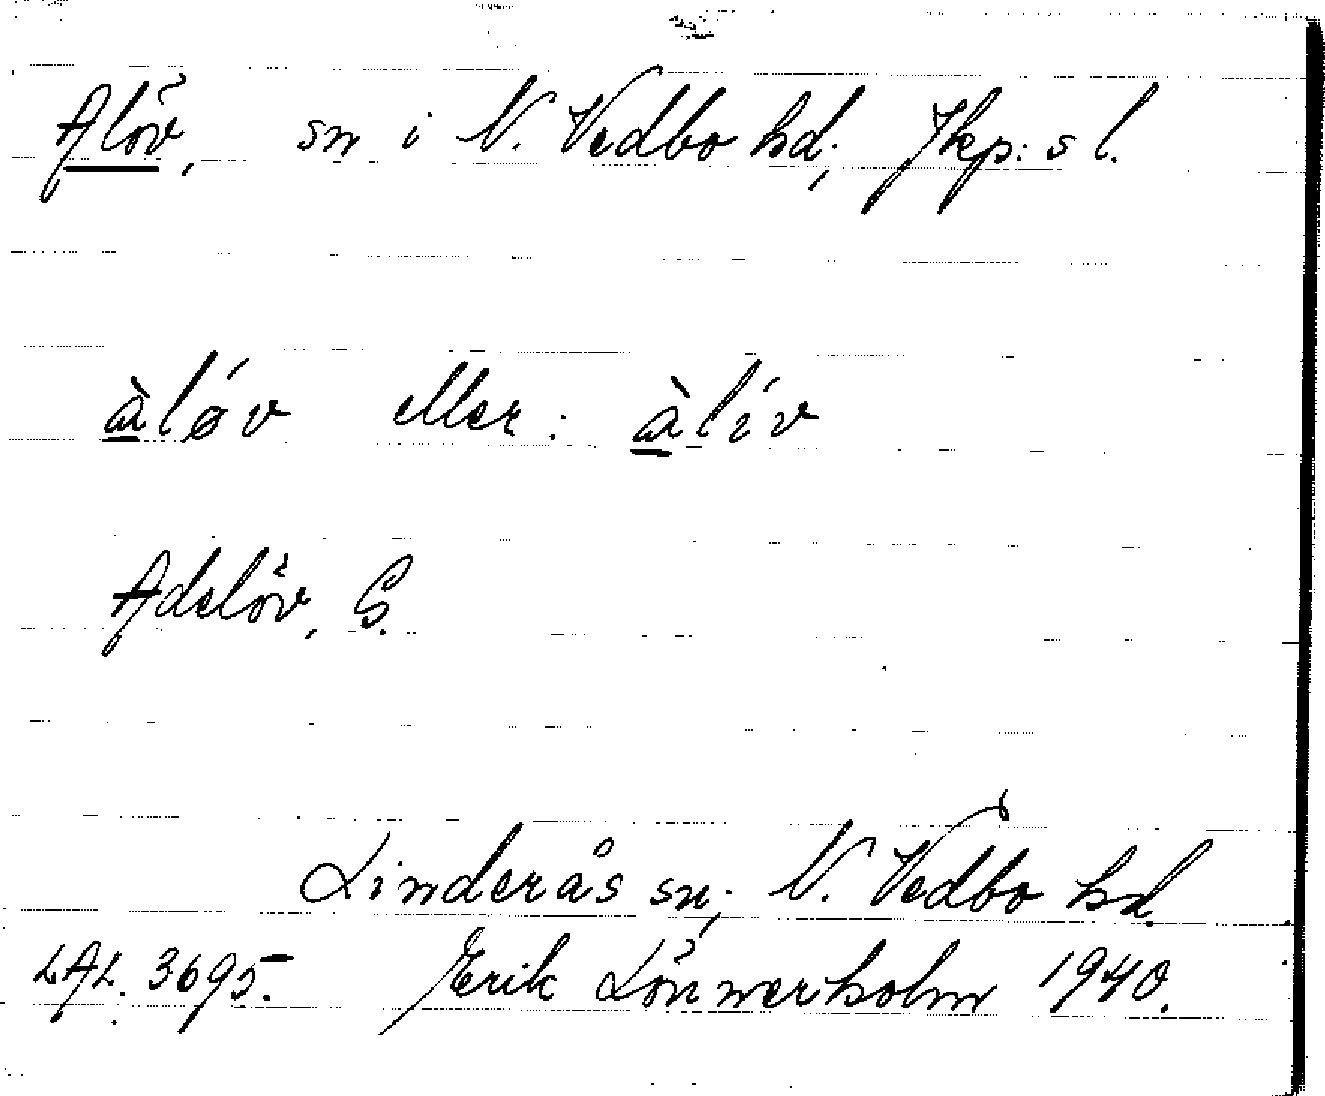 Alöv, sn i N. Vedbo hd; Jkp:s l.
àløv eller: àliv
Adelöv, S.
Linderås sn; N. Vedbo hd.
LAL. 3695. Erik Lönnerholm 1940.